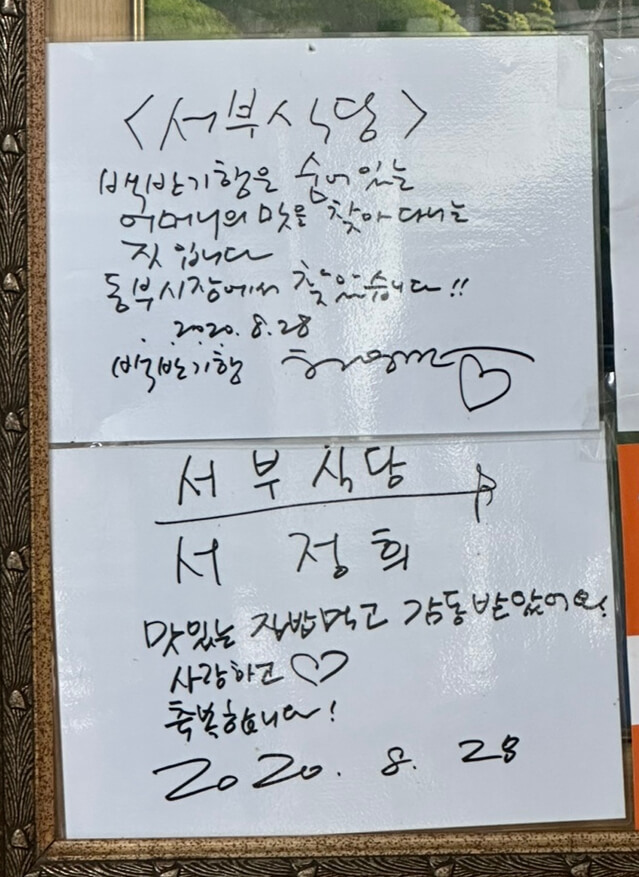 <서부식당>
백반기행은 숨어있는
어머니의 맛을 찾아다니는
짓입니다
동부시장에서 찾았습니다!!
2020.8.28
백반기행
서부식당
서정희
맛있는 집밥먹고 감동받았어요!
사랑하고♡
축복합니다!
2020. 8. 28